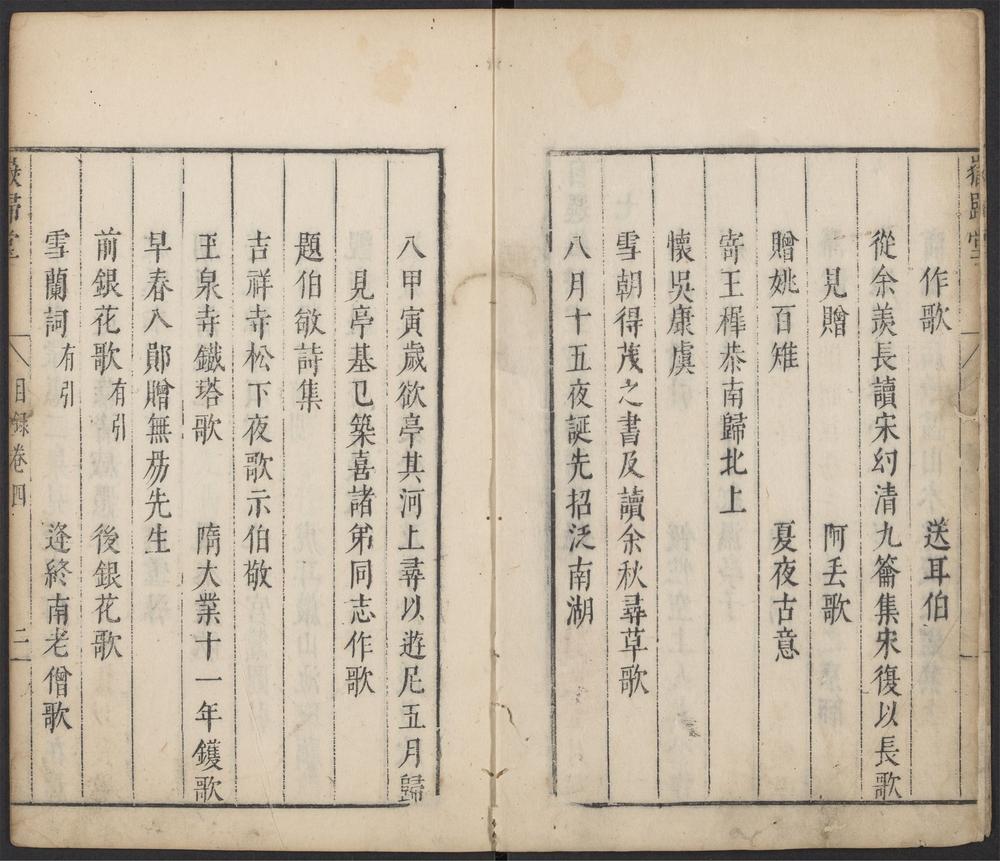 嶽歸堂
作歌　送耳伯
從余羨長讀宋幻清九籥集宋復以長歌
見贈　阿丟歌
贈姚百雉　夏夜古意
寄王穉恭南歸北上
懷吳康虞
雪朝得茂之書及讀余秋尋草歌
八月十五夜誕先招泛南湖
八甲寅歲欲亭其河上尋以遊尼五月歸
見亭基已築喜諸弟同志作歌
題伯敏詩集
吉祥寺松下夜歌示伯敬
玉泉寺鐵塔歌　隋大業十一年鑊歌
早春入鄖贈無易先生
前銀花歌有引　後銀花歌
雪蘭詞有引　逢終南老僧歌
嶽歸堂　目錄卷四　二